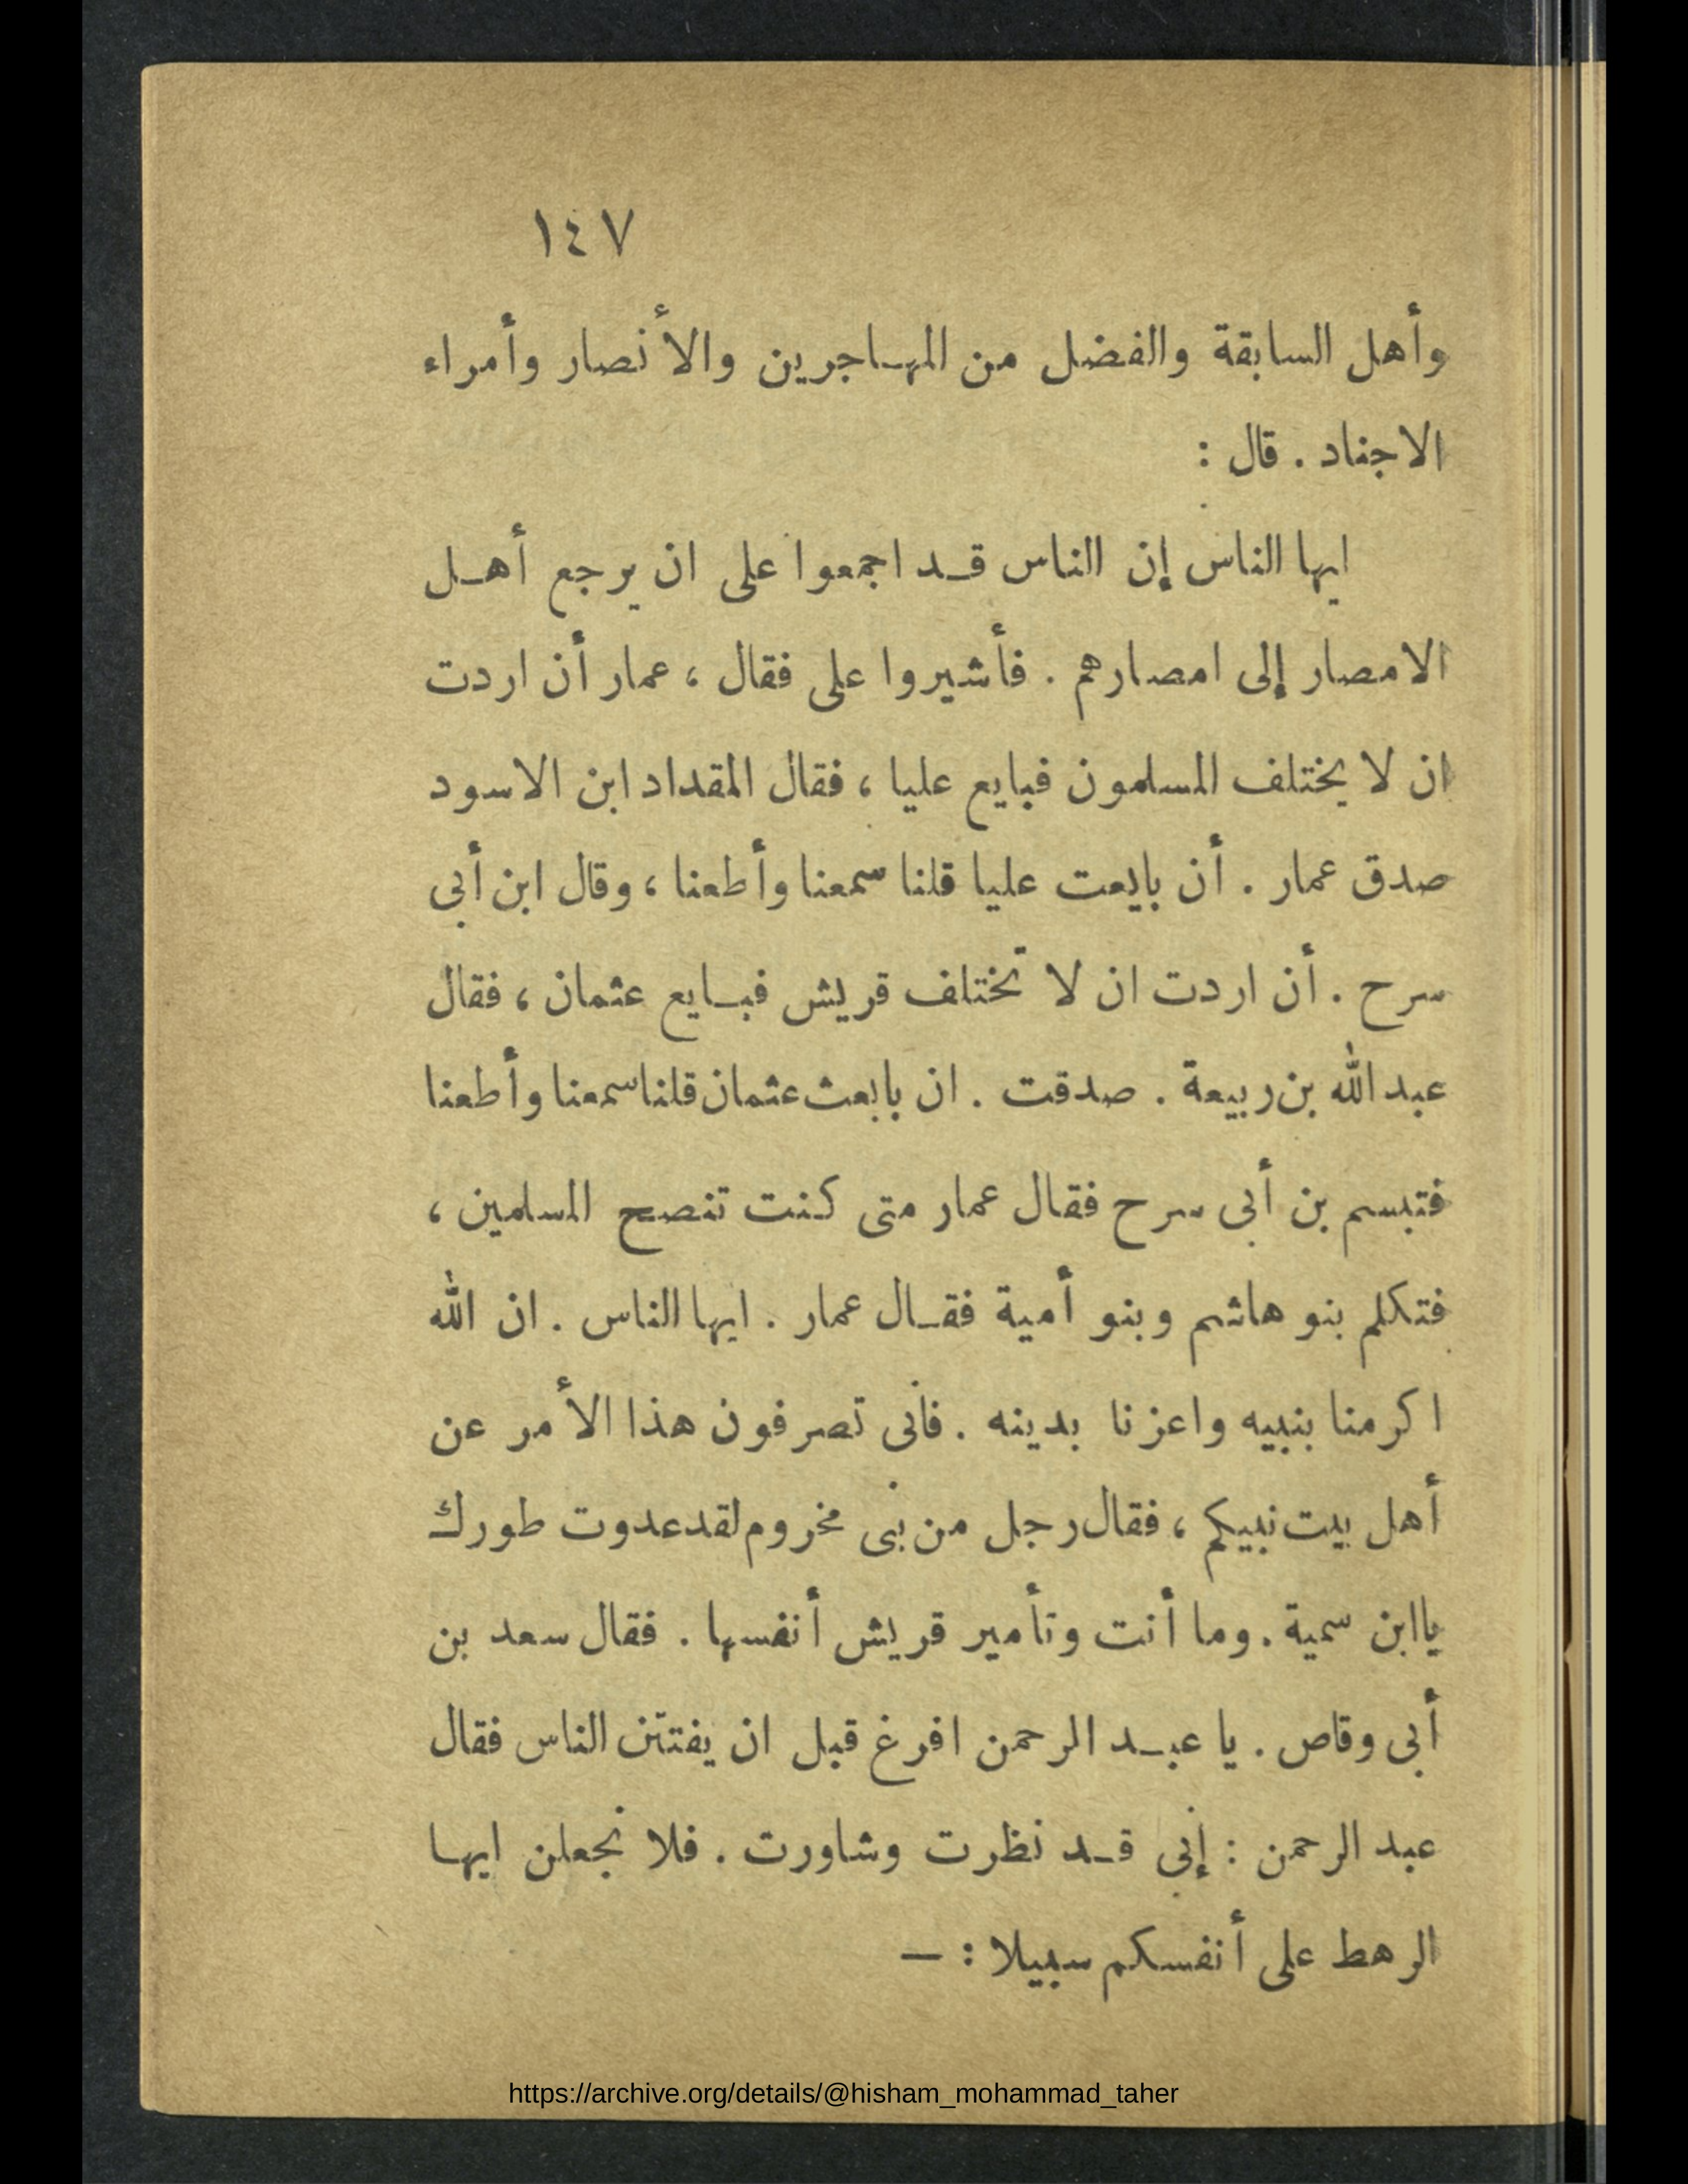 ١٤٧
وأهل السابقة والفضل من المهاجرين والأنصار وأمراء
الاجناد . قال :
ايها الناس إن الناس قد اجمعوا على ان يرجع أهل
الامصار إلى امصارهم . فأشيروا على فقال ، عمار أن اردت
ان لا يختلف المسلمون فبايع عليا ، فقال المقداد ابن الاسود
صدق عمار . أن بايعت عليا قلنا سمعنا وأطعنا ، وقال ابن أبى
سرح . أن اردت ان لا تختلف قريش فبايع عثمان ، فقال
عبد الله بن ربيعة . صدقت . ان بابعث عثمان قلنا سمعنا وأطعنا
فتبسم بن أبى سرح فقال عمار متى كنت تنصح المسلمين ،
فتكلم بنو هاشم وبنو أمية فقال عمار . ايها الناس . ان الله
اكرمنا بنبيه واعزنا بدينه . فأنى تصرفون هذا الأمر عن
أهل بيت نبيكم ، فقال رجل من بنى مخروم لقد عدوت طورك
ياابن سمية . وما أنت وتأمير قريش أنفسها . فقال سعد بن
أبى وقاص . يا عبد الرحمن افرغ قبل ان يفتتن الناس فقال
عبد الرحمن : إنى قد نظرت وشاورت . فلا نجعلن ايها
الرهط على أنفسكم سبيلا : —
https://archive.org/details/@hisham_mohammad_taher